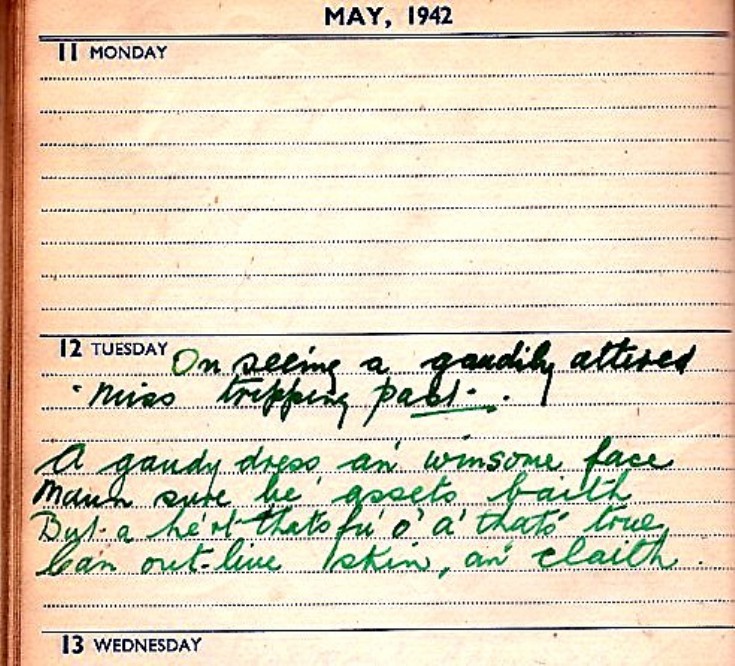 MAY, 1942
11 MONDAY
12 TUESDAY On seeing a gaudily attired
"Miss" tripping past.
A gaudy dress an' winsome face
Maun sure be assets baith
But a he'rt thats fu' o' a' thats true
Can out-live skin, an' claith.
13 WEDNESDAY